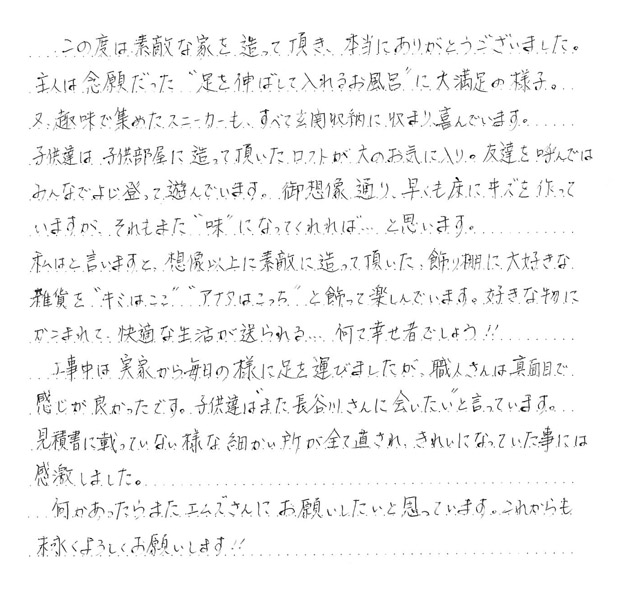 この度は素敵な家を造って頂き、本当にありがとうございました。
主人は念願だった“足を伸ばして入れるお風呂”に大満足の様子。
又、趣味で集めたスニーカーも、すべて玄関収納に収まり喜んでいます。
子供達は、子供部屋に造って頂いたロフトが大のお気に入り。友達を呼んでは
みんなでよじ登って遊んでいます。御想像通り、早くも床にキズを作って
いますが、それもまた“味”になってくれれば…と思います。
私はと言いますと、想像以上に素敵に造って頂いた、飾り棚に大好きな
雑貨を“キミはここ”“アナタはこっち”と飾って楽しんでいます。好きな物に
かこまれて、快適な生活が送られる…何て幸せ者でしょう!!
工事中は実家から毎日の様に足を運びましたが、職人さんは真面目で
感じが良かったです。子供達は“また長谷川さんに会いたい”と言っています。
見積書に載っていない様な細かい所が全て直され、きれいになっていた事には
感激しました。
何かあったらまたエムズさんにお願いしたいと思っています。これからも
末永くよろしくお願いします!!